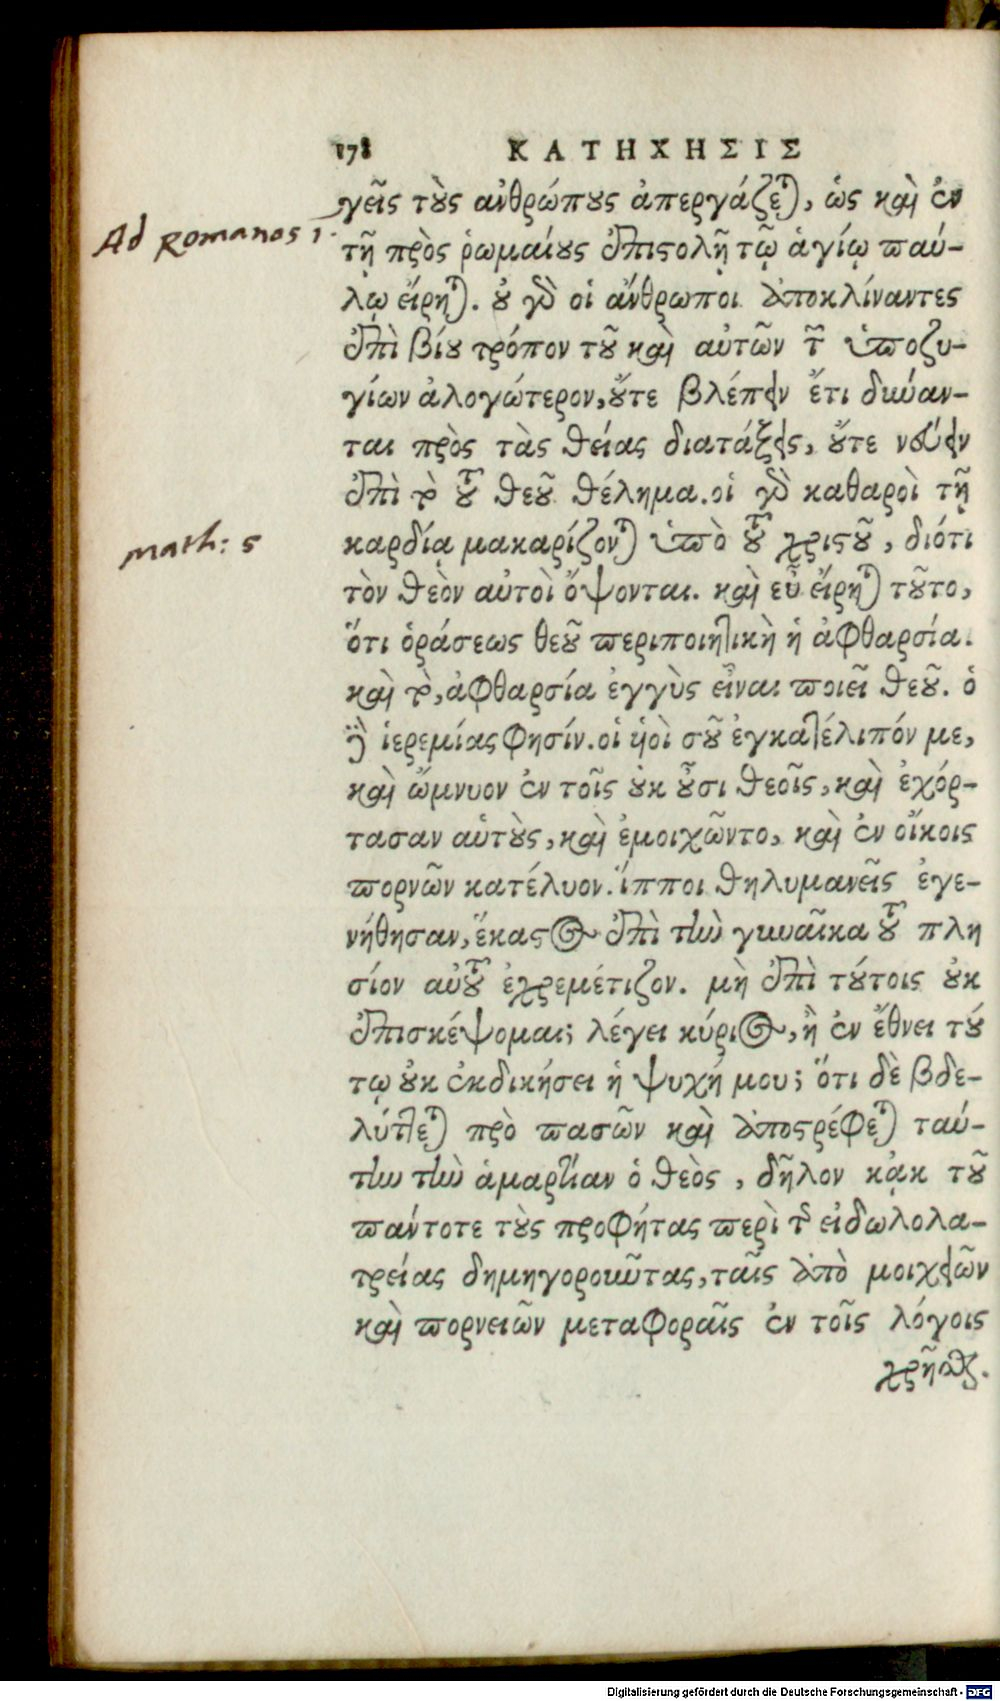 178 ΚΑΤΗΧΗΣΙΣ
γεῖς τοὺς ἀνθρώπους ἀπεργάζεται, ὡς καὶ ἐν
Ad Romanos 1.
τῇ πρὸς ῥωμαίους ἐπιστολῇ τῷ ἁγίῳ παύ-
λῳ εἴρηται. οὐ γὰρ οἱ ἄνθρωποι ἀποκλίναντες
ἐπὶ βίου τρόπον τοῦ καὶ αὐτῶν τῶν ὑποζυ-
γίων ἀλογώτερον, οὔτε βλέπειν ἔτι δύναν-
ται πρὸς τὰς θείας διατάξεις, οὔτε νεύειν
ἐπὶ τὸ τοῦ θεοῦ θέλημα. οἱ γὰρ καθαροὶ τῇ
math: 5
καρδίᾳ μακαρίζονται ὑπὸ τοῦ χριστοῦ, διότι
τὸν θεὸν αὐτοὶ ὄψονται. καὶ εὖ εἴρηται τοῦτο,
ὅτι ὁράσεως θεοῦ περιποιητικὴ ἡ ἀφθαρσία.
καὶ τὸ, ἀφθαρσία ἐγγὺς εἶναι ποιεῖ θεοῦ. ὁ
δὲ ἱερεμίας φησίν. οἱ ὑοὶ σοῦ ἐγκατέλιπόν με,
καὶ ὤμνυον ἐν τοῖς οὐκ οὖσι θεοῖς, καὶ ἐχόρ-
τασαν αὐτοὺς, καὶ ἐμοιχῶντο, καὶ ἐν οἴκοις
πορνῶν κατέλυον. ἵπποι θηλυμανεῖς ἐγε-
νήθησαν, ἕκαστος ἐπὶ τὴν γυναῖκα τοῦ πλη
σίον αὐτοῦ ἐχρεμέτιζον. μὴ ἐπὶ τούτοις οὐκ
ἐπισκέψομαι; λέγει κύριος, ἢ ἐν ἔθνει τού
τῳ οὐκ ἐκδικήσει ἡ ψυχή μου; ὅτι δὲ βδε-
λύττεται πρὸ πασῶν καὶ ἀποστρέφεται ταύ-
την τὴν ἁμαρτίαν ὁ θεὸς, δῆλον κᾀκ τοῦ
πάντοτε τοὺς προφήτας περὶ τῆς εἰδωλολα-
τρείας δημηγοροῦντας, ταῖς ἀπὸ μοιχειῶν
καὶ πορνειῶν μεταφοραῖς ἐν τοῖς λόγοις
χρῆσθαι.
Digitalisierung gefördert durch die Deutsche Forschungsgemeinschaft - DFG